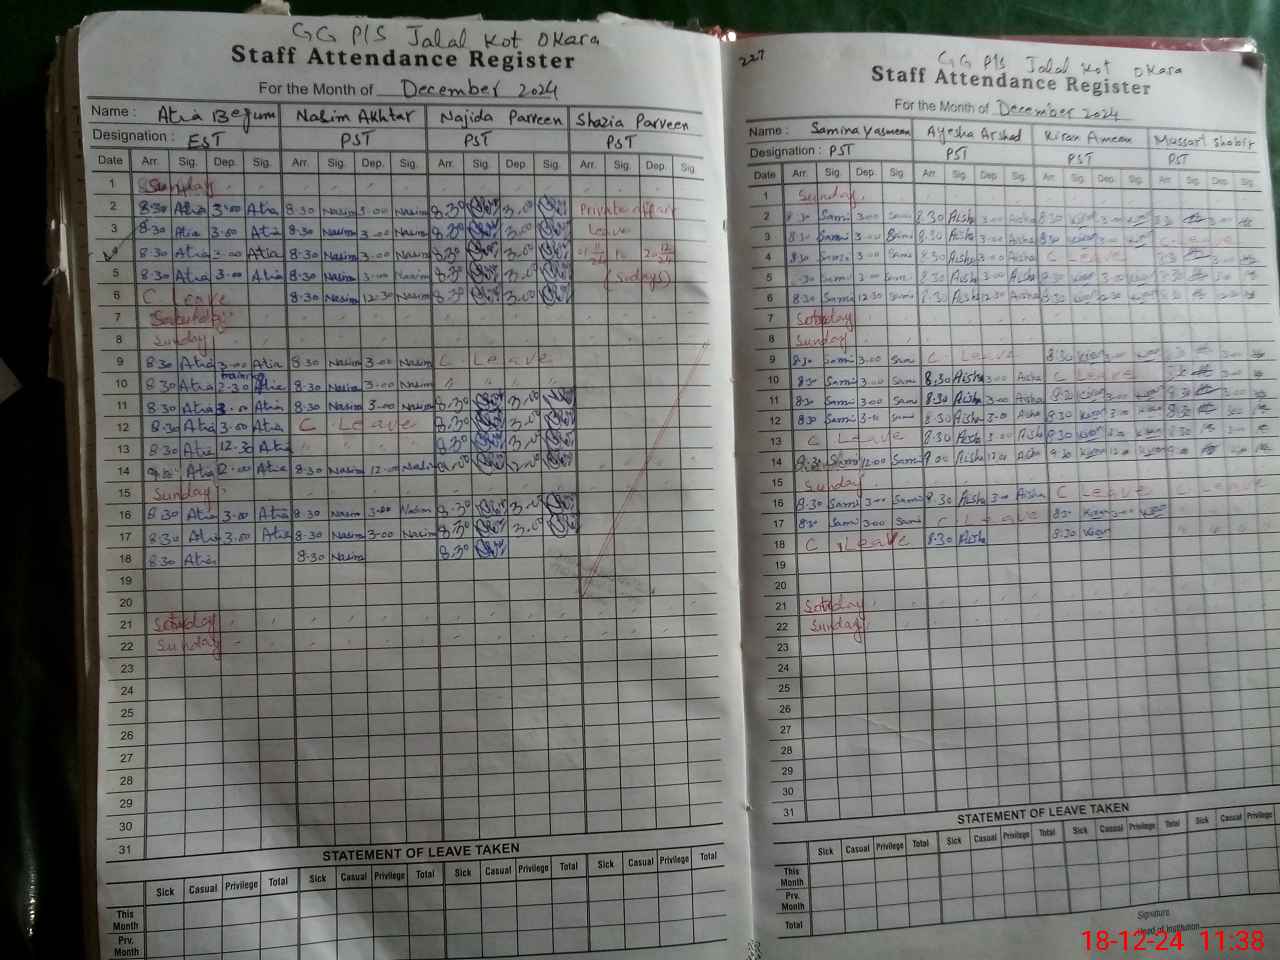 GG P/S Jalal Kot OKara
Staff Attendance Register
For the Month of December 2024
Name : Atia Begum Nasim Akhtar Najida Parveen Shazia Parveen
Designation : EST PST PST PST
Date Arr. Sig. Dep. Sig. Arr. Sig. Dep. Sig. Arr. Sig. Dep. Sig. Arr. Sig. Dep. Sig.
1 Sunday
2 8.30 Atia 3.00 Atia 8.30 Nasim 3.00 Nasim 8.30 3.00 Private affair
3 8.30 Atia 3.00 Atia 8.30 Nasim 3.00 Nasim 8.30 3.00 Leave
4 8.30 Atia 3.00 Atia 8.30 Nasim 3.00 Nasim 8.30 3.00 to
5 8.30 Atia 3.00 Atia 8.30 Nasim 3.00 Nasim 8.30 3.00
6 C Leave 8.30 Nasim 12.30 Nasim 8.30 3.00
7 Saturday
8 Sunday
9 8.30 Atia 3.00 Atia 8.30 Nasim 3.00 Nasim C Leave
10 8.30 Atia 2.30 Atia 8.30 Nasim 3.00 Nasim
11 8.30 Atia 3.00 Atia 8.30 Nasim 3.00 Nasim 8.30 3.00
12 8.30 Atia 3.00 Atia C Leave 8.30 3.00
13 8.30 Atia 12.30 Atia 8.30 3.00
14 9.00 Atia 12.00 Atia 8.30 Nasim 12.00 Nasim
15 Sunday
16 8.30 Atia 3.00 Atia 8.30 Nasim 3.00 Nasim 8.30 3.00
17 8.30 Atia 3.00 Atia 8.30 Nasim 3.00 Nasim 8.30 3.00
18 8.30 Atia 8.30 Nasim 8.30
19
20
21 Saturday
22 Sunday
23
24
25
26
27
28
29
30
31
STATEMENT OF LEAVE TAKEN
Sick Casual Privilege Total Sick Casual Privilege Total Sick Casual Privilege Total Sick Casual Privilege Total
This Month
Prv. Month
227
GG P/S Jalal Kot OKara
Staff Attendance Register
For the Month of December 2024
Name : Samina Yasmeen Ayesha Arshad Kiran Ameen Mussart shabir
Designation : PST PST PST PST
Date Arr. Sig. Dep. Sig. Arr. Sig. Dep. Sig. Arr. Sig. Dep. Sig. Arr. Sig. Dep. Sig.
1 Sunday
2 8.30 Sami 3.00 Sami 8.30 Aisha 3.00 Aisha 8.30 Kiran 3.00
3 8.30 Sami 3.00 Sami 8.30 Aisha 3.00 Aisha 8.30 Kiran 3.00 C Leave
4 8.30 Sami 3.00 Sami 8.30 Aisha 3.00 Aisha C Leave
5 8.30 Sami 3.00 Sami 8.30 Aisha 3.00 Aisha 8.30 Kiran 3.00
6 8.30 Sami 12.30 Sami 8.30 Aisha 12.30 Aisha 8.30 Kiran
7 Saturday
8 Sunday
9 8.30 Sami 3.00 Sami C Leave 8.30 Kiran 3.00
10 8.30 Sami 3.00 Sami 8.30 Aisha 3.00 Aisha C Leave
11 8.30 Sami 3.00 Sami 8.30 Aisha 3.00 Aisha 8.30 Kiran 3.00
12 8.30 Sami 3.00 Sami 8.30 Aisha 3.00 Aisha 8.30 Kiran 3.00
13 C Leave 8.30 Aisha 3.00 Aisha 8.30 Kiran
14 Sami 12.00 Sami 9.00 Aisha 12.00 Aisha Kiran
15 Sunday
16 8.30 Sami 3.00 Sami 8.30 Aisha 3.00 Aisha C Leave C Leave
17 8.30 Sami 3.00 Sami C Leave 8.30 Kiran 3.00 Kiran
18 C Leave 8.30 Aisha 8.30 Kiran
19
20
21 Saturday
22 Sunday
23
24
25
26
27
28
29
30
31
STATEMENT OF LEAVE TAKEN
Sick Casual Privilege Total Sick Casual Privilege Total Sick Casual Privilege
This Month
Prv. Month
Total
Signature
Head of Institution
18-12-24 11:38